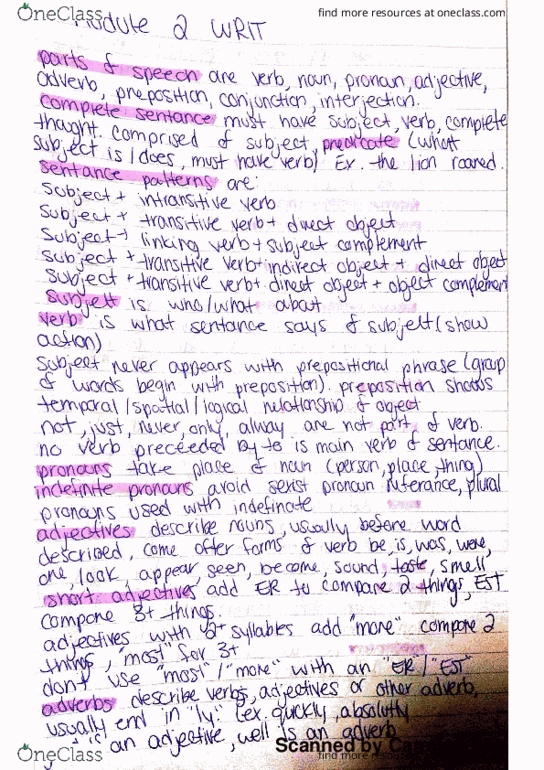 OneClass
find more resources at oneclass.com
Module 2 WRIT
parts of speech are verb, noun, pronoun, adjective,
adverb, preposition, conjunction, interjection.
complete sentence must have subject, verb, complete
thought. comprised of subject, predicate (what
subject is / does, must have verb) Ex. the lion roared.
sentance patterns are:
Subject + intransitive verb
Subject + transitive verb + direct object
Subject + linking verb + subject complement
subject + transitive verb + indirect object + direct object
Subject + transitive verb + direct object + object complement
subject is who/what about
verb is what sentance says of subject (show
action)
Subject never appears with prepositional phrase (group
of words begin with preposition). preposition shows
temporal / spatial / logical relationship of object
not, just, never, only, alway are not part of verb.
no verb preceeded by to is main verb of sentance.
pronouns take place of noun (person, place, thing)
indefinite pronouns avoid sexist pronoun, plural
pronouns used with indefinate
adjectives describe nouns, usually before word
described, come after forms of verb be, is, was, were,
look, appear, seen, become, sound, taste, smell
short adjectives add ER to compare 2 things, EST
compare 3+ things.
adjectives with 2+ syllables add "more" compare 2
things, "most" for 3+
don't use "most" / "more" with an "ER / "EST"
adverbs describe verbs, adjectives or other adverb,
usually end in "ly". (ex. quickly, absolutly
is an adjective, well is an adverb
Scanned by
OneClass
find more resources at oneclass.com